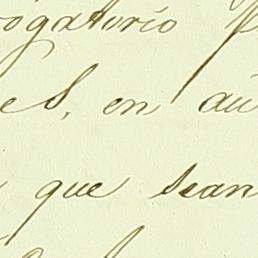 ogatorio p
es, en au
que sean